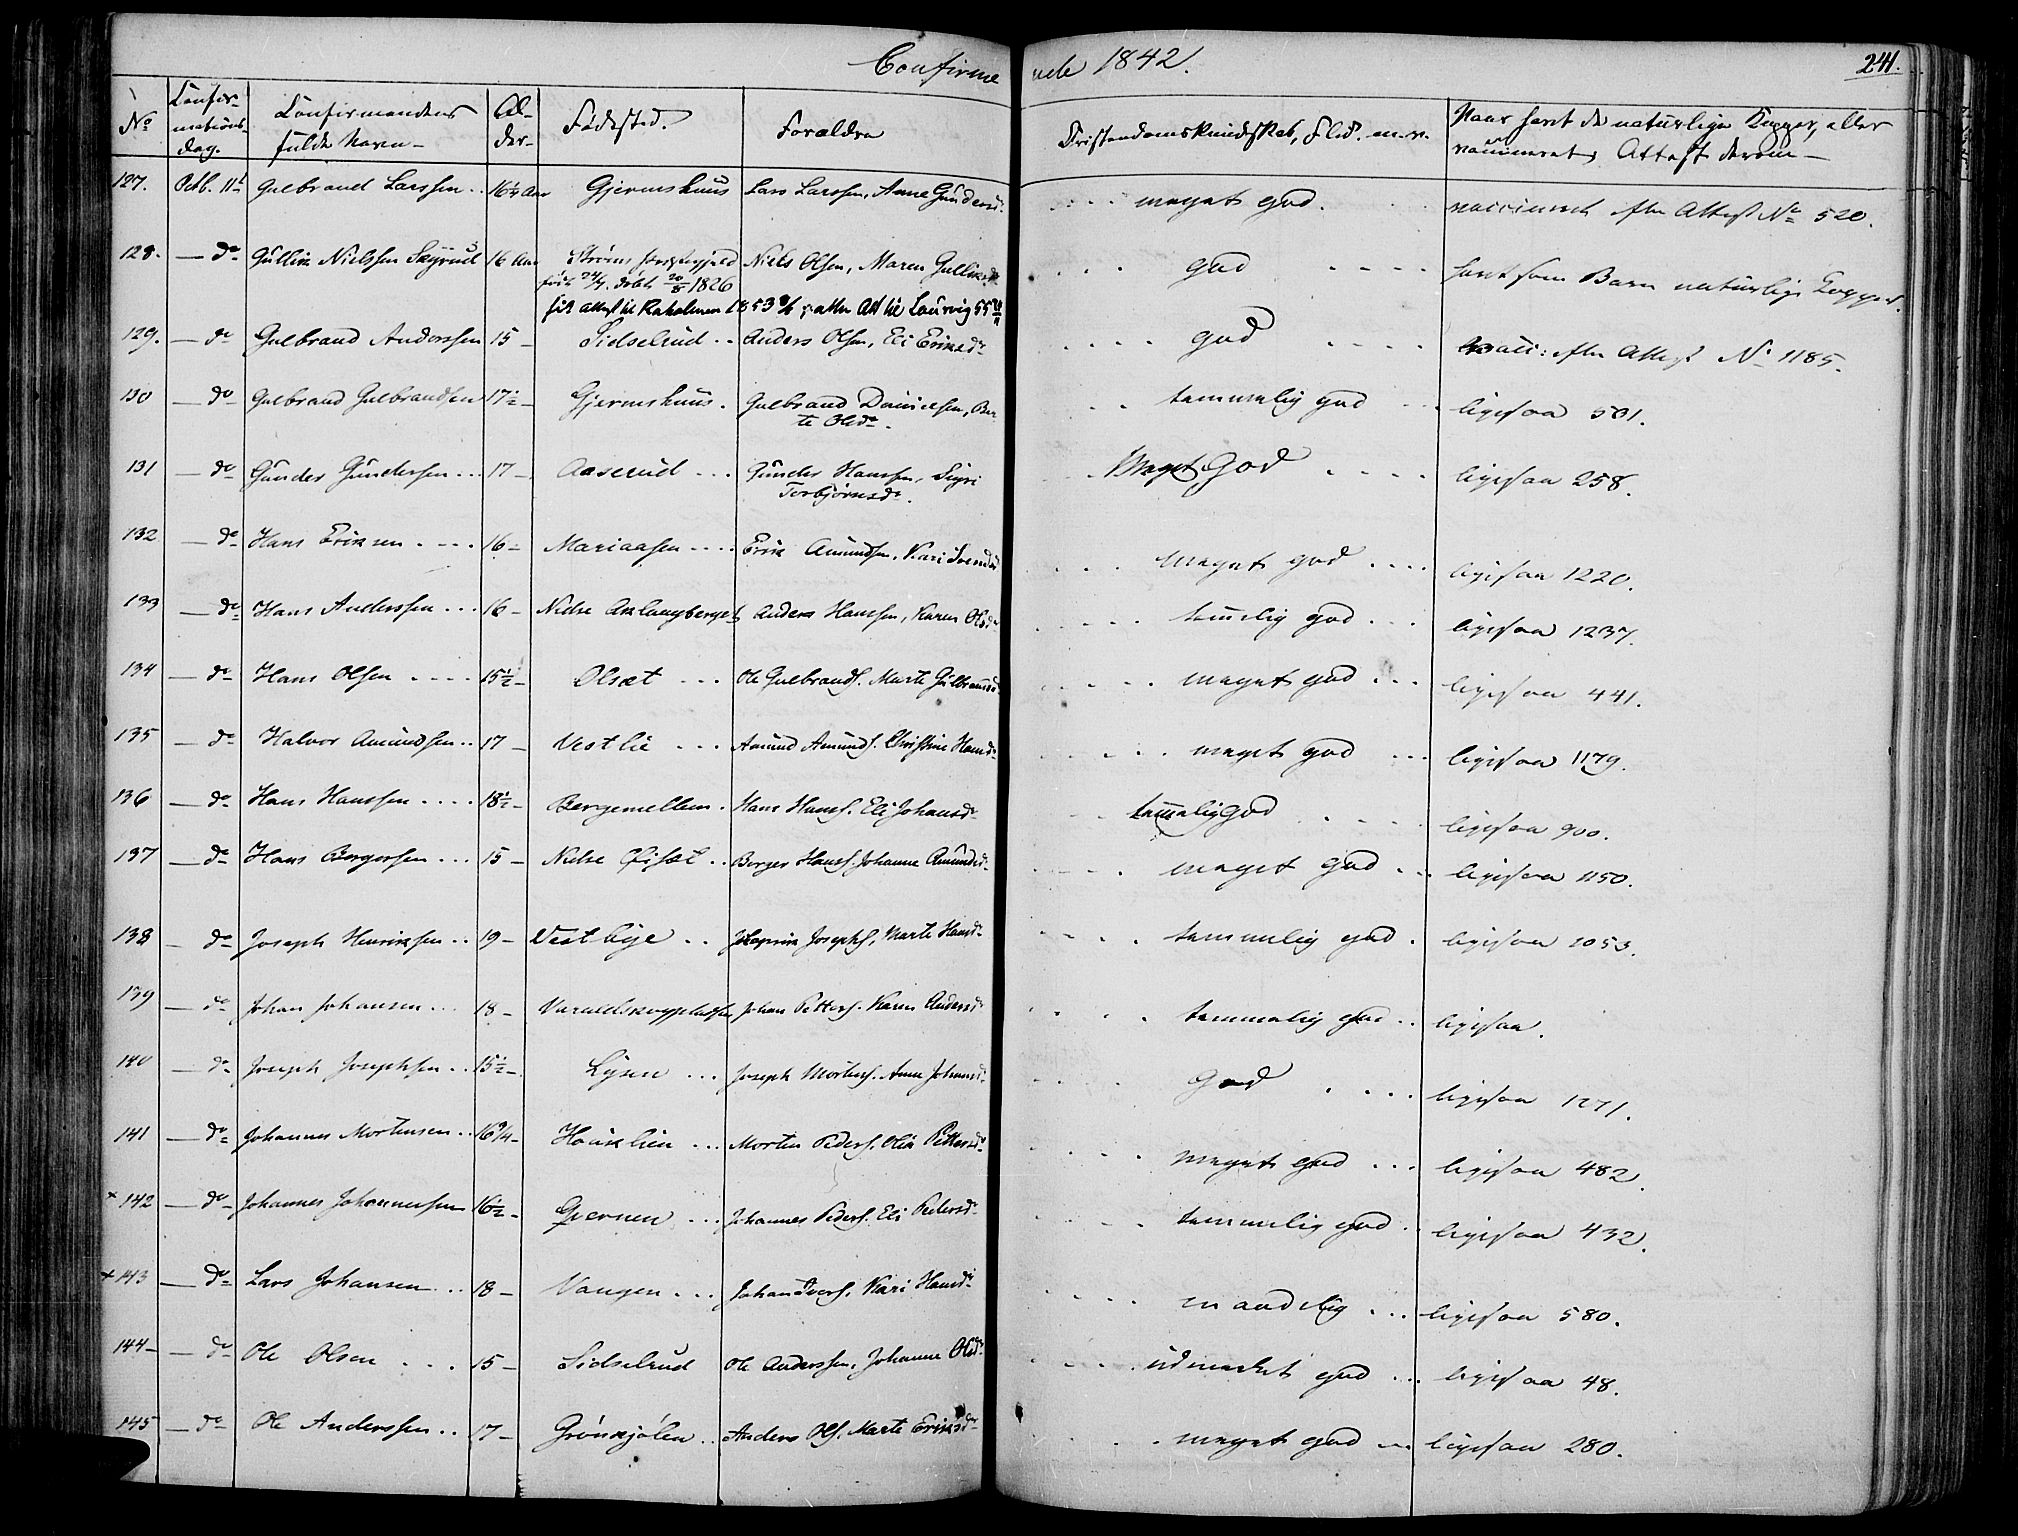 Confirmerede 1842.
241.
No
Confirmationsdag.
Confirmandens fulde Navn
Alder
Fødested.
Forældre
Kristendomskundskab, Flid. m.v.
Naar havt de naturlige Kopper, eller vaccineret, Attest derom
127. Octb. 11te Gulbrand Larssen .. 16¼ Aar Gjermshuus Lars Larssen, Anne Gundersdr. meget god. vaccineret efter Attest No 520.
128. — do Gullik Nielssen Skyrud 16 Aar Strøms Præstegjeld Niels Olsen, Maren Gulliksdr god havt som Barn naturlige Kopper.
født 24/4. døbt 20/5 1826
129. — do Gulbrand Anderssen 15 — Sidselrud .. Anders Olsen, Eli Eriksdr god vacci: efter Attest No 1185.
130 — do Gulbrand Gulbrandsen 17½ Gjermshuus. Gulbrand Danielsen, Berte Olsdr. temmelig god ligesaa 501.
131 — do Gunder Gundersen ... 17 — Aaserud ... Gunder Hanssen, Sigri Torbjørnsdr. Meget God ligesaa 258.
132 — do Hans Eriksen .... 16 — Mariaasen .... Erik Amundsen, Kari Svendsdr meget god .... ligesaa 1220.
133 — do Hans Anderssen ... 16 — Nedre Aslangberget Anders Hanssen, Karen Olsdr temelig god ... ligesaa 1237.
134 — do Hans Olsen .... 15½ — Olset ... Ole Gulbrands. Marte Gulbrandsdr meget god ... ligesaa 441.
135 — do Halvor Amundsen .. 17 — Vestlie ... Amund Amunds. Christine Hansdr meget god ... ligesaa 1179.
136 — do Hans Hanssen .... 18½ — Bergemellem. Hans Hanss. Eli Johansdr temelig god ligesaa 900.
137 — do Hans Borgersen ... 15 — Nedre Øiset .. Borger Hanss. Johanne Amundsdr. meget god ... ligesaa 1150.
138 — do Joseph Henriksen .. 19 — Vestlige .. Josephs, Marte Hansdr temmelig god . ligesaa 1053.
139 — do Johan Johansen ... 18 — Johan Petters. Karen Andersdr temmelig god .. ligesaa.
140 — do Joseph Josephsen .. 15½ — Lysen ... Joseph Mortens. Anne Johansdr. God .... ligesaa 1271.
141 — do Johannes Mortensen .. 16¾ — Hauklien ... Morten Peders. Olia Pettersdr meget god ... ligesaa 482.
× 142 — do Johannes Johannessen 16½ — Qvernen ... Johannes Peders. Eli Pedersdr temmelig god . ligesaa 432.
× 143 — do Lars Johansen ... 18 — Vangen ... Johan Ivers. Kari Hansdr maadelig ... ligesaa 580.
144 — do Ole Olsen .... 15 — Sidselrud Ole Anderssen, Johanne Olsdr. udmerket god ... ligesaa 48.
145 — do Ole Anderssen .. 17 — Grønkjølen .. Anders Ols. Marte Eriksdr meget god ... ligesaa 280.